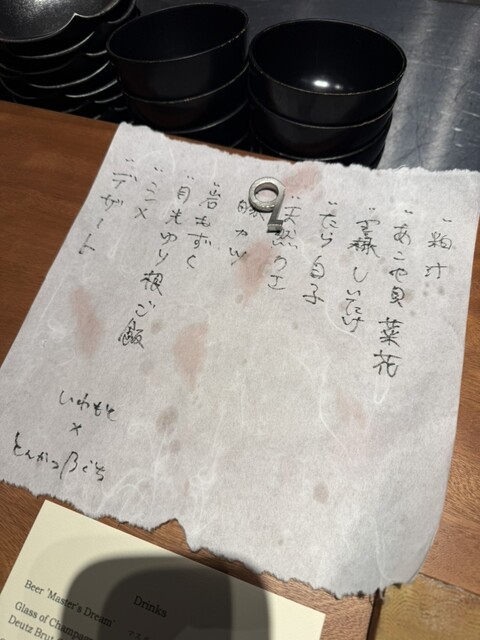 粕汁
あこや貝 菜花
雲丹しいたけ
たら白子
天然クエ
豚カツ
岩もずく
月光ゆり根ご飯
〆
デザート
いわもと
×
とんかつ
Drinks
Beer 'Master's Dream'
Glass of Champagne
Deutz Brut